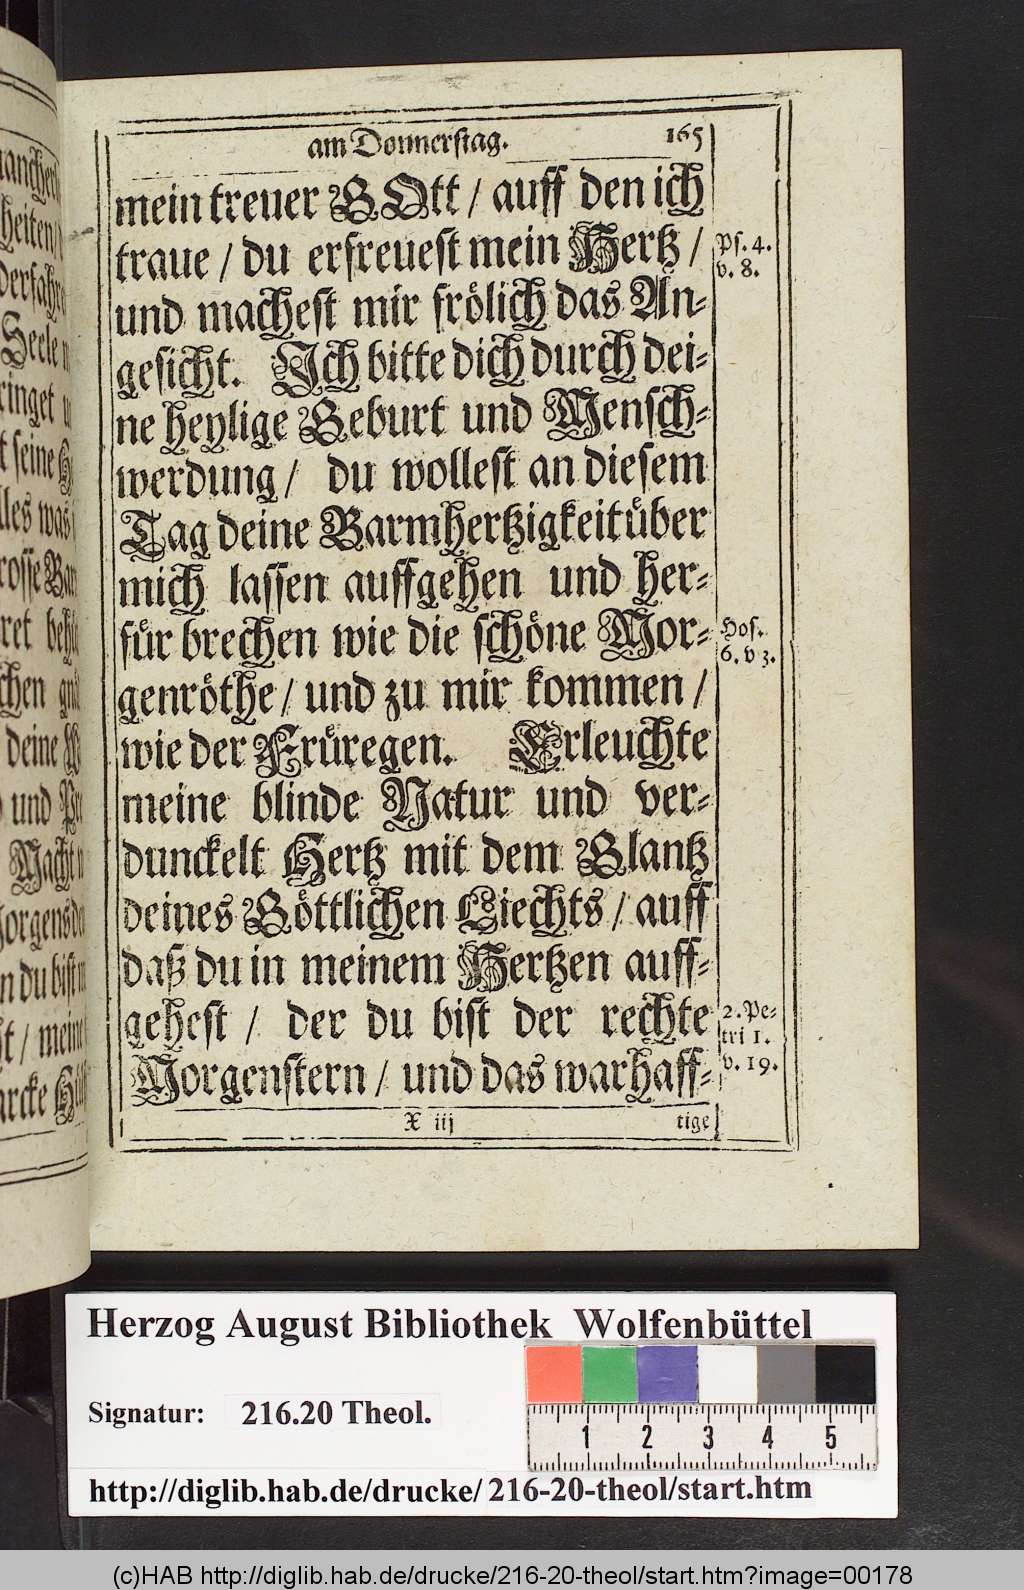 am Donnerstag. 165
mein treuer GOtt / auff den ich
traue / du erfreuest mein Hertz /
Ps. 4.
v. 8.
und machest mir frölich das An-
gesicht. Ich bitte dich durch dei-
ne heylige Geburt und Mensch-
werdung / du wollest an diesem
Tag deine Barmhertzigkeit über
mich lassen auffgehen und her-
für brechen wie die schöne Mor-
Hos.
6. v 3.
genröthe / und zu mir kommen /
wie der Früregen. Erleuchte
meine blinde Natur und ver-
dunckelt Hertz mit dem Glantz
deines Göttlichen Liechts / auff
daß du in meinem Hertzen auff-
gehest / der du bist der rechte
2. Pe-
tri 1.
v. 19.
Morgenstern / und das warhaff-
X iij tige
heiten
Seele
ringet
seine
les was
rosse Bar
ret
chen
deine
und
Macht
orgens
n du bist
t / meine
arcke
Herzog August Bibliothek Wolfenbüttel
Signatur: 216.20 Theol.
1 2 3 4 5
http://diglib.hab.de/drucke/216-20-theol/start.htm
(c)HAB http://diglib.hab.de/drucke/216-20-theol/start.htm?image=00178